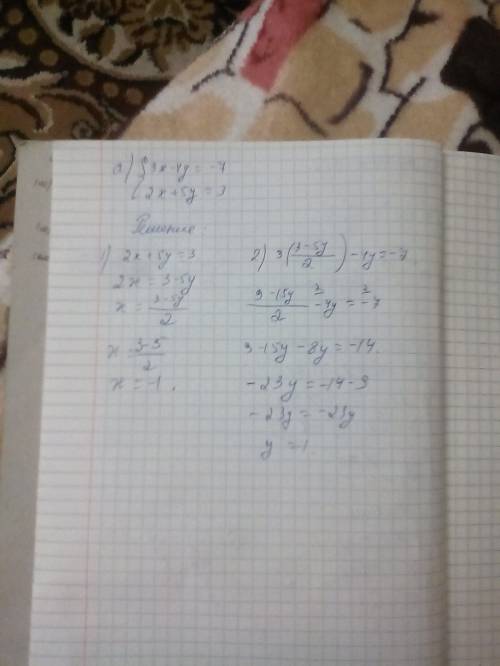 а) { 3x-4y = -7
{ 2x+5y = 3
Решение.
1) 2x+5y = 3
2x = 3-5y
x = (3-5y)/2
x = (3-5)/2
x = -1.
2) 3((3-5y)/2) - 4y = -7
(9-15y)/2 - 4y ² = -7 ²
9-15y-8y = -14.
-23y = -14-9
-23y = -23y
y = 1